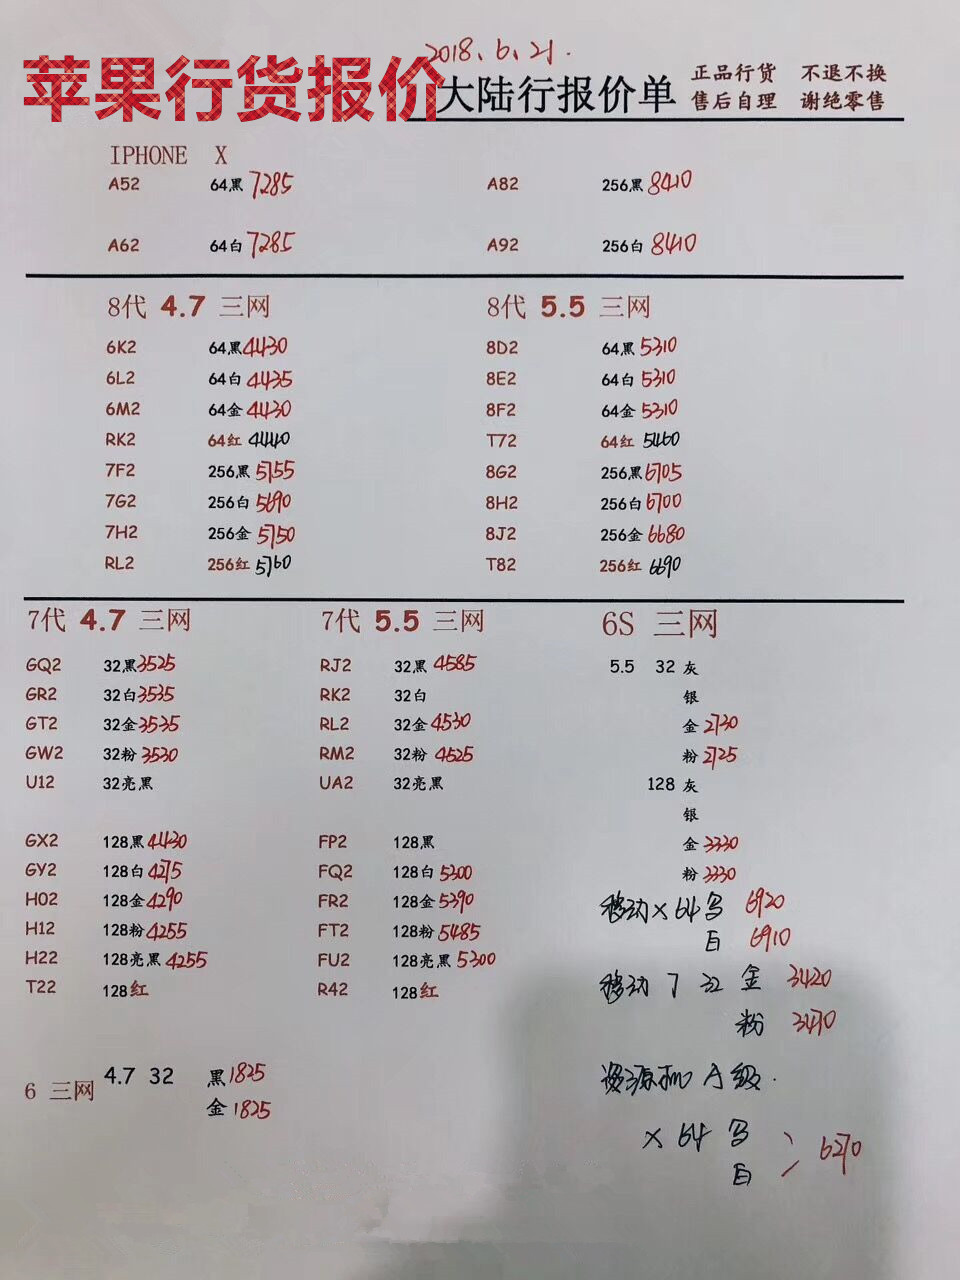 2018.6.21.
苹果行货报价
大陆行报价单
正品行货 不退不换
售后自理 谢绝零售
IPHONE X
A52 64黑 7285 A82 256黑 8410
A62 64白 7285 A92 256白 8410
8代 4.7 三网
6K2 64黑 4430
6L2 64白 4435
6M2 64金 4430
RK2 64红 4440
7F2 256黑 5755
7G2 256白 5690
7H2 256金 5750
RL2 256红 5760
8代 5.5 三网
8D2 64黑 5310
8E2 64白 5310
8F2 64金 5310
T72 64红 5460
8G2 256黑 6705
8H2 256白 6700
8J2 256金 6680
T82 256红 6690
7代 4.7 三网
GQ2 32黑 3525
GR2 32白 3535
GT2 32金 3535
GW2 32粉 3530
U12 32亮黑
GX2 128黑 4430
GY2 128白 4275
H02 128金 4290
H12 128粉 4255
H22 128亮黑 4255
T22 128红
7代 5.5 三网
RJ2 32黑 4585
RK2 32白
RL2 32金 4530
RM2 32粉 4525
UA2 32亮黑
FP2 128黑
FQ2 128白 5300
FR2 128金 5390
FT2 128粉 5485
FU2 128亮黑 5300
R42 128红
6S 三网
5.5 32 灰
银
金 2730
粉 2725
128 灰
银
金 3330
粉 3330
移动 X 64 6920
白 6910
移动 7 32 金 3420
粉 3470
资源机 A级.
X 64 6270
白
6 三网 4.7 32 黑 1825
金 1825